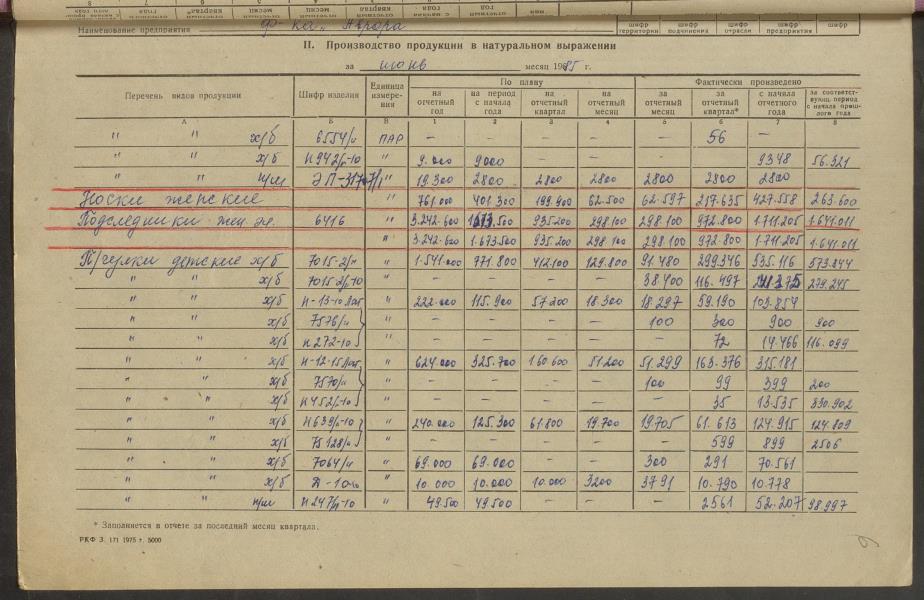 Наименование предприятия ф-ка „Аврора
шифр территории шифр подчинения шифр отрасли шифр предприятия шифр
II. Производство продукции в натуральном выражении
за июнь месяц 1985 г.
Перечень видов продукции Шифр изделия Единица измерения По плану Фактически произведено
на отчетный год на период с начала года на отчетный квартал на отчетный месяц за отчетный месяц за отчетный квартал* с начала отчетного года за соответствующ. период с начала прошлого года
А Б В 1 2 3 4 5 6 7 8
" " х/б 6554/н ПАР — — — — — 56 —
" " х/б Н942/р-10 " 9.000 9000 — — — — 9348 56.321
" " п/ш ЭЛ-3170/1 " 19.300 2800 2800 2800 2800 2800 2800
Носки женские " 761.000 401.300 199.900 62.500 62.597 217.635 427.558 263.600
Подследники жен. эл. 6416 " 3.242.600 1673.500 935.200 298.100 298.100 972.800 1.711.205 1.641.011
" 3.242.600 1.673.500 935.200 298.100 298.100 972.800 1.711.205 1.641.011
П/чулки детские х/б 7015-2/н " 1.541.000 771.800 412.100 129.800 91.480 299.346 535.116 573.844
" " х/б 7015-2/р-10 " — — — — 38.400 116.497 279.245
" " х/б Н-13-10 " 222.000 115.900 57.200 18.300 18.297 59.190 103.854
" " х/б 7576/н " — — — — 100 300 900 900
" " х/б Н272-10 " — — — — — 72 14.466 116.099
" " х/б Н-12-15 " 624.000 325.700 160.600 51.200 51.299 163.376 315.181
" " х/б 7570/н " — — — — 100 99 399 200
" " х/б Н452/р-10 " — — — — — 35 13.535 330.902
" " х/б Н639/р-10 " 240.000 125.300 61.800 19.700 19.705 61.613 124.915 124.809
" " х/б 7512в/н " — — — — — 599 899 2506
" " х/б 7064/н " 69.000 69.000 — — 300 291 70.561
" " х/б Д-10 " 10.000 10.000 10.000 3200 3791 10.790 10.778
" " п/ш Н247/р-10 " 49.500 49.500 — — — 2561 52.207 98.997
* Заполняется в отчете за последний месяц квартала.
РКФ З. 171 1975 г. 5000